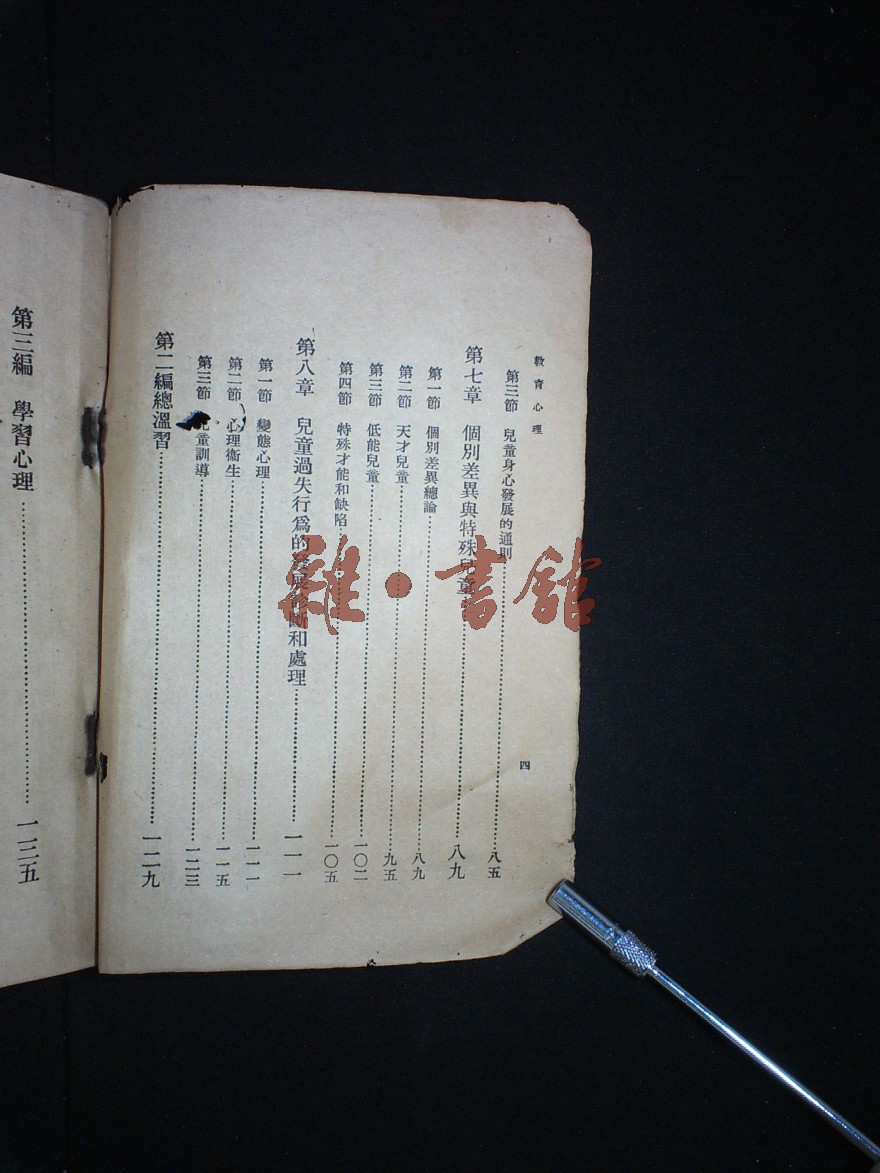 教育心理
四
第三節 兒童身心發展的通則⋯⋯八五
第七章 個別差異與特殊兒童⋯⋯八九
第一節 個別差異總論⋯⋯八九
第二節 天才兒童⋯⋯九五
第三節 低能兒童⋯⋯一〇二
第四節 特殊才能和缺陷⋯⋯一〇五
第八章 兒童過失行爲的發展診斷和處理⋯⋯一一一
第一節 變態心理⋯⋯一一一
第二節 心理衞生⋯⋯一一五
第三節 兒童訓導⋯⋯一二三
第二編總溫習⋯⋯一二九
第三編 學習心理⋯⋯一三五
雜·書館